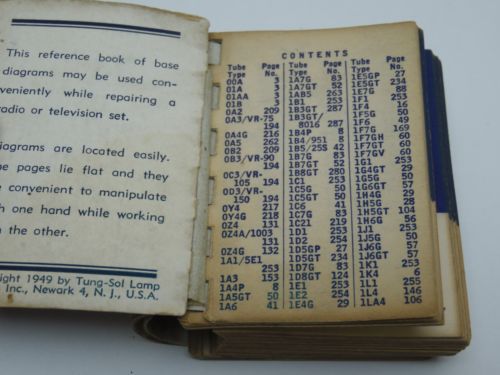 This reference book of base
diagrams may be used con-
veniently while repairing a
radio or television set.
diagrams are located easily.
pages lie flat and they
convenient to manipulate
one hand while working
the other.
1949 by Tung-Sol Lamp
Inc., Newark 4, N. J., U.S.A.
CONTENTS
Tube Page
Type No.
00A 3
01A 3
01AA 3
01B 3
0A2 209
0A3/VR-75
194
0A4G 216
0A5 262
0B2 209
0B3/VR-90
194
0C3/VR-
105 194
0D3/VR-
150 194
0Y4 217
0Y4G 218
0Z4 131
0Z4A/1003
131
0Z4G 132
1A1/5E1
253
1A3 153
1A4P 8
1A5GT 50
1A6 41
Tube Page
Type No.
1A7G 83
1A7GT 52
1AB5 263
1B1 253
1B3GT 287
1B3GT/
8016 287
1B4P 8
1B4/951 8
1B5/25S 42
1B7G 83
1B7GT 53
1B8GT 280
1C1 253
1C5GT 50
1C6 41
1C7G 83
1C21 219
1D1 253
1D2 254
1D5GP 27
1D5GT 234
1D7G 83
1D8GT 124
1E1 253
1E2 254
1E4G 29
Tube Page
Type No.
1E5GP 27
1E5GT 234
1E7G 88
1F1 253
1F4 16
1F5G 50
1F6 49
1F7G 169
1F7GH 60
1F7GT 60
1F7GV 60
1G1 253
1G4GT 29
1G5G 50
1G6GT 57
1H4G 29
1H5G 28
1H5GT 104
1H6G 56
1J1 253
1J5G 50
1J6G 57
1J6GT 57
1K1 253
1K4 6
1L1 255
1L4 146
1LA4 106